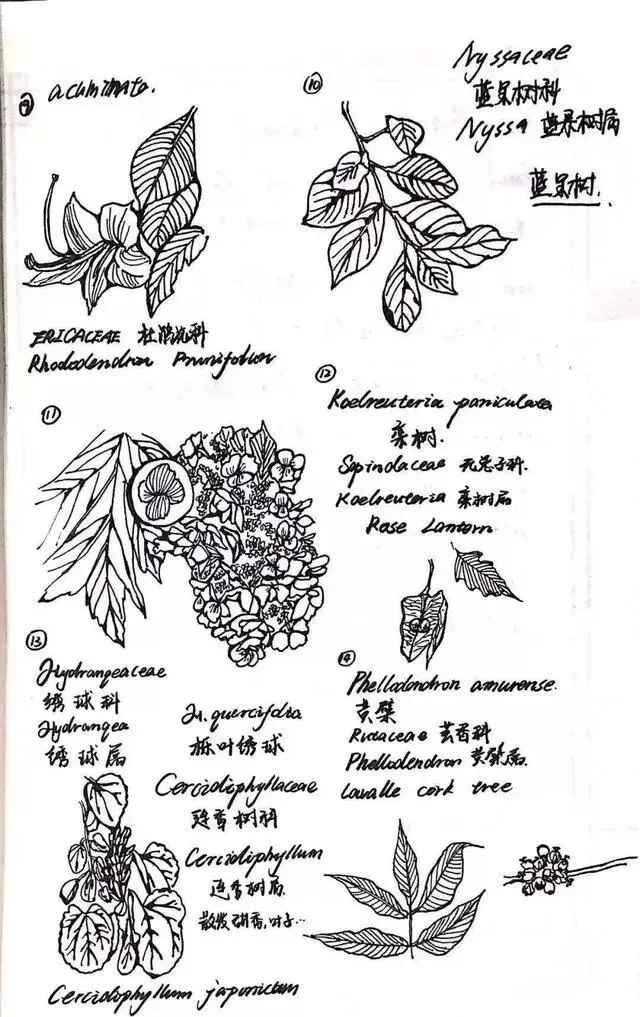 ⑨ acuminata.
ERICACEAE 杜鹃花科
Rhododendron Prunifolium
⑩
Nyssaceae
蓝果树科
Nyssa 蓝果树属
蓝果树.
⑪
⑫
Koelreuteria paniculata
栾树.
Sapindaceae 无患子科.
Koelreuteria 栾树属
Rose Lantern
⑬
Hydrangeaceae
绣球科
Hydrangea
绣球属
H. quercifolia
栎叶绣球
Cercidiphyllaceae
连香树科
Cercidiphyllum
连香树属
散发 香,叶子…
Cercidiphyllum japonicum
⑭
Phellodendron amurense.
黄檗
Rutaceae 芸香科
Phellodendron 黄檗属.
Lavalle cork tree